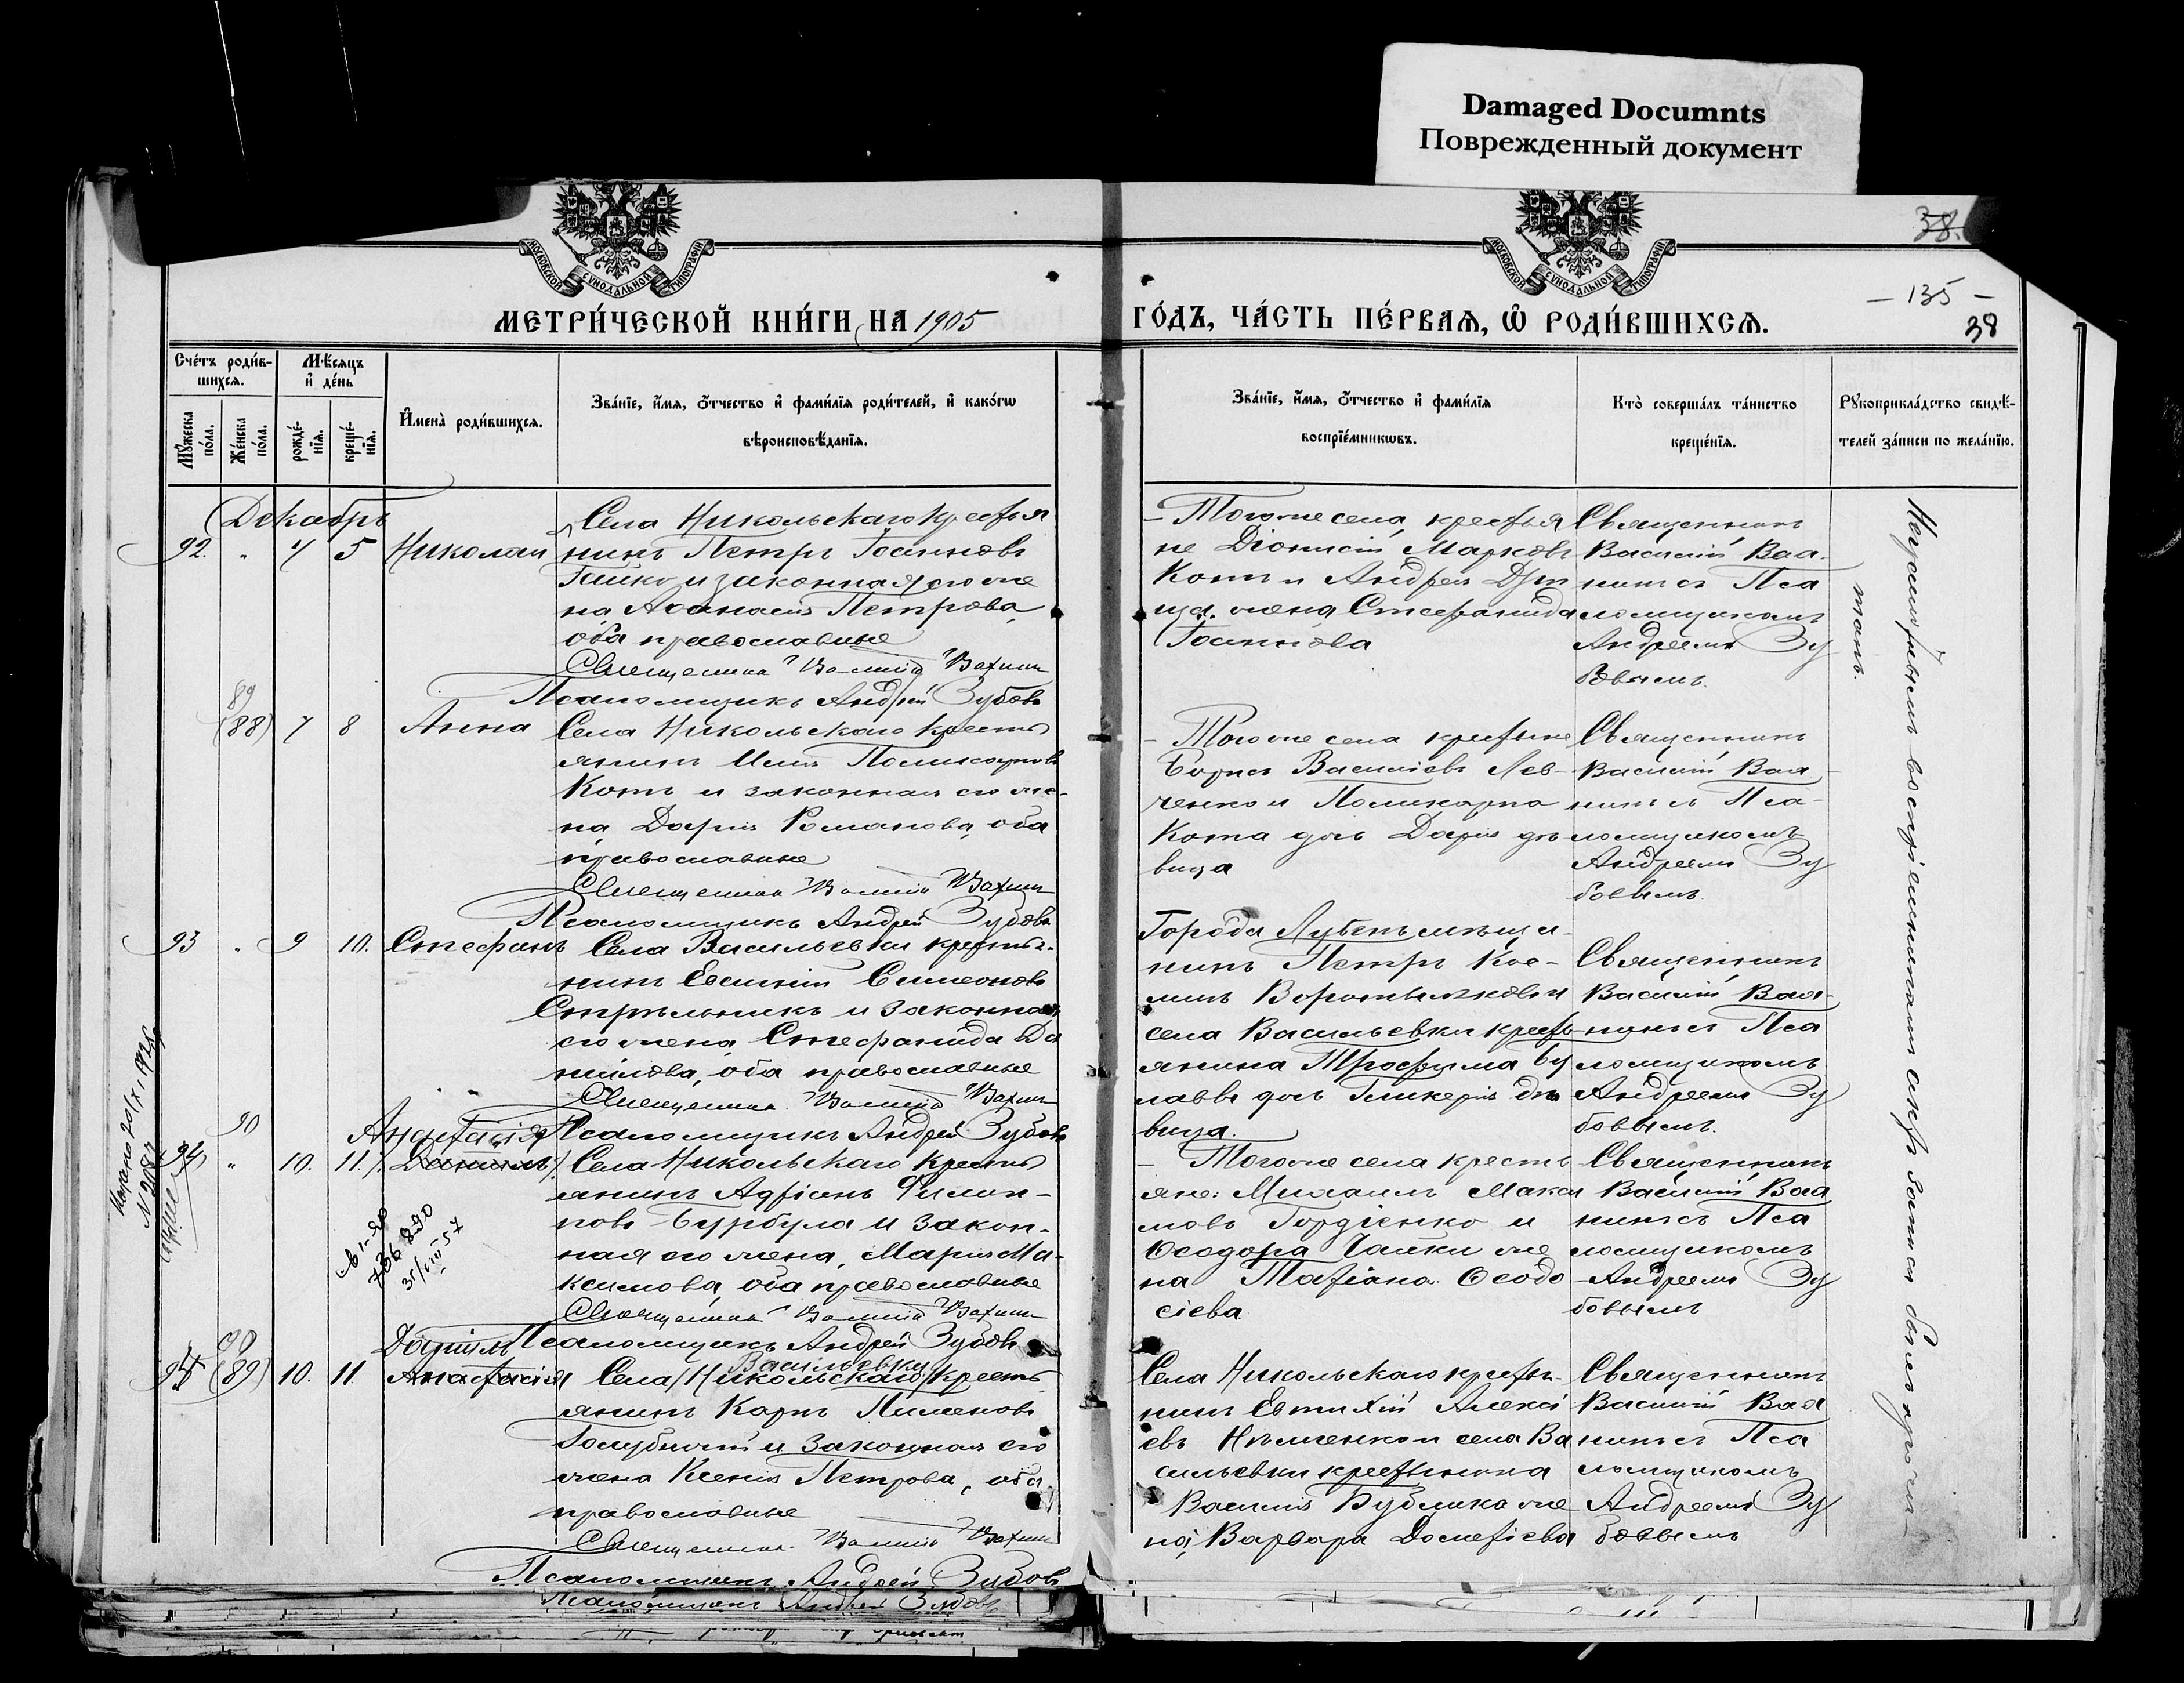 Damaged Documnts
Поврежденный документ
МОСКОВСКОЙ СѴНОДАЛЬНОЙ ТИПОГРАФІИ
МОСКОВСКОЙ СѴНОДАЛЬНОЙ ТИПОГРАФІИ
38.
— 135 —
38
МЕТРИ́ЧЕСКОЙ КНИ́ГИ НА 1905
ГО́ДЪ, ЧА́СТЬ ПЕ́РВАѦ, Ѽ РОДИ́ВШИХСѦ.
Сче́тъ роди́в-
шихсѧ.
Мѣ́сѧцъ
и҆ де́нь
Мꙋ́жеска
по́ла.
Же́нска
по́ла.
рожде́-
нїѧ.
креще́-
нїѧ.
И҆мена̀ роди́вшихсѧ.
Зва́нїе, и҆́мѧ, ѻ҆́тчество и҆ фами́лїѧ роди́телей, и҆ како́гѡ
вѣроисповѣ́данїѧ.
Зва́нїе, и҆́мѧ, ѻ҆́тчество и҆ фами́лїѧ
воспрїе́мникѡвъ.
Кто̀ соверша́лъ та́инство
креще́нїѧ.
Рꙋкоприкла́дство свидѣ́-
телей за́писи по жела́нїю.
Декабрь
92. " 4 5 Николай
Села Никольскаго крестья
нинъ Петръ Іоанновъ
Гайко и законная его же
на Аѳанасія Петрова,
оба православные
Священникъ Василій
Псаломщикъ Андрей Зубовъ
— Тогоже села, крестья
не Діонисій Марковъ
Котъ и Андрея
жена Стефанида
Іоаннова
Священникъ
Василій
съ Пса
ломщикомъ
Андреемъ Зу
бовымъ.
89
(88) 7 8 Анна
Села Никольскаго кресть
янинъ Поликарповъ
Котъ и законная его же-
на Дарія Романова, оба
православные
Священникъ Василій
Псаломщикъ Андрей Зубовъ
— Тогоже села крестьяне
Борисъ Василіевъ Лев-
ченко и Поликарпа
Кота дочь Дарія дѣ
вица
Священникъ
Василій
съ Пса-
ломщикомъ
Андреемъ Зу
бовымъ.
93 " 9 10. Стефанъ
Села Васильевки крестья-
нинъ Евсигній Симеоновъ
Стрѣльникъ и законная
его жена Стефанида Да
ніилова, оба православные
Священникъ Василій
Псаломщикъ Андрей Зубовъ
Города Лубенъ мѣща-
нинъ Петръ Кос-
минъ и
села Васильевки кресть
янина Трофима Бу
дочь Гликерія дѣ
вица.
Священникъ
Василій
съ Пса
ломщикомъ
Андреемъ Зу
бовымъ.
90
Анастасія
94 " 10. 11. Даніилъ
Села Никольскаго кресть
янинъ Адріанъ Филип-
повъ Бурбула и закон-
ная его жена, Марія Ма-
ксимова, оба православные
Священникъ Василій
Псаломщикъ Андрей Зубовъ
— Тогоже села кресть
яне: Михаилъ Макси
мовъ Гордіенко и
Ѳеодора Гайки же
на Татіана Ѳеодо
сіева.
Священникъ
Василій
съ Пса
ломщикомъ
Андреемъ Зу
бовымъ
Даніилъ
(89) 10. 11. Анастасія
Васильевки
Села Никольскаго кресть
янинъ Карпъ Пименовъ
Голубничій и законная его
жена Ксенія Петрова, оба
православные
Священникъ Василій
Псаломщикъ Андрей Зубовъ
Села Никольскаго крестья-
нинъ Евтихій Алексі
евъ и села Ва
сильевки крестьянина
Василія Бублика же
на, Варвара Дометіева
Священникъ
Василій
съ Пса
ломщикомъ
Андреемъ Зу
бовымъ
Неграмотнымъ воспріемникамъ актъ записи былъ прочи-
танъ.
Псаломщикъ Андрей Зубовъ